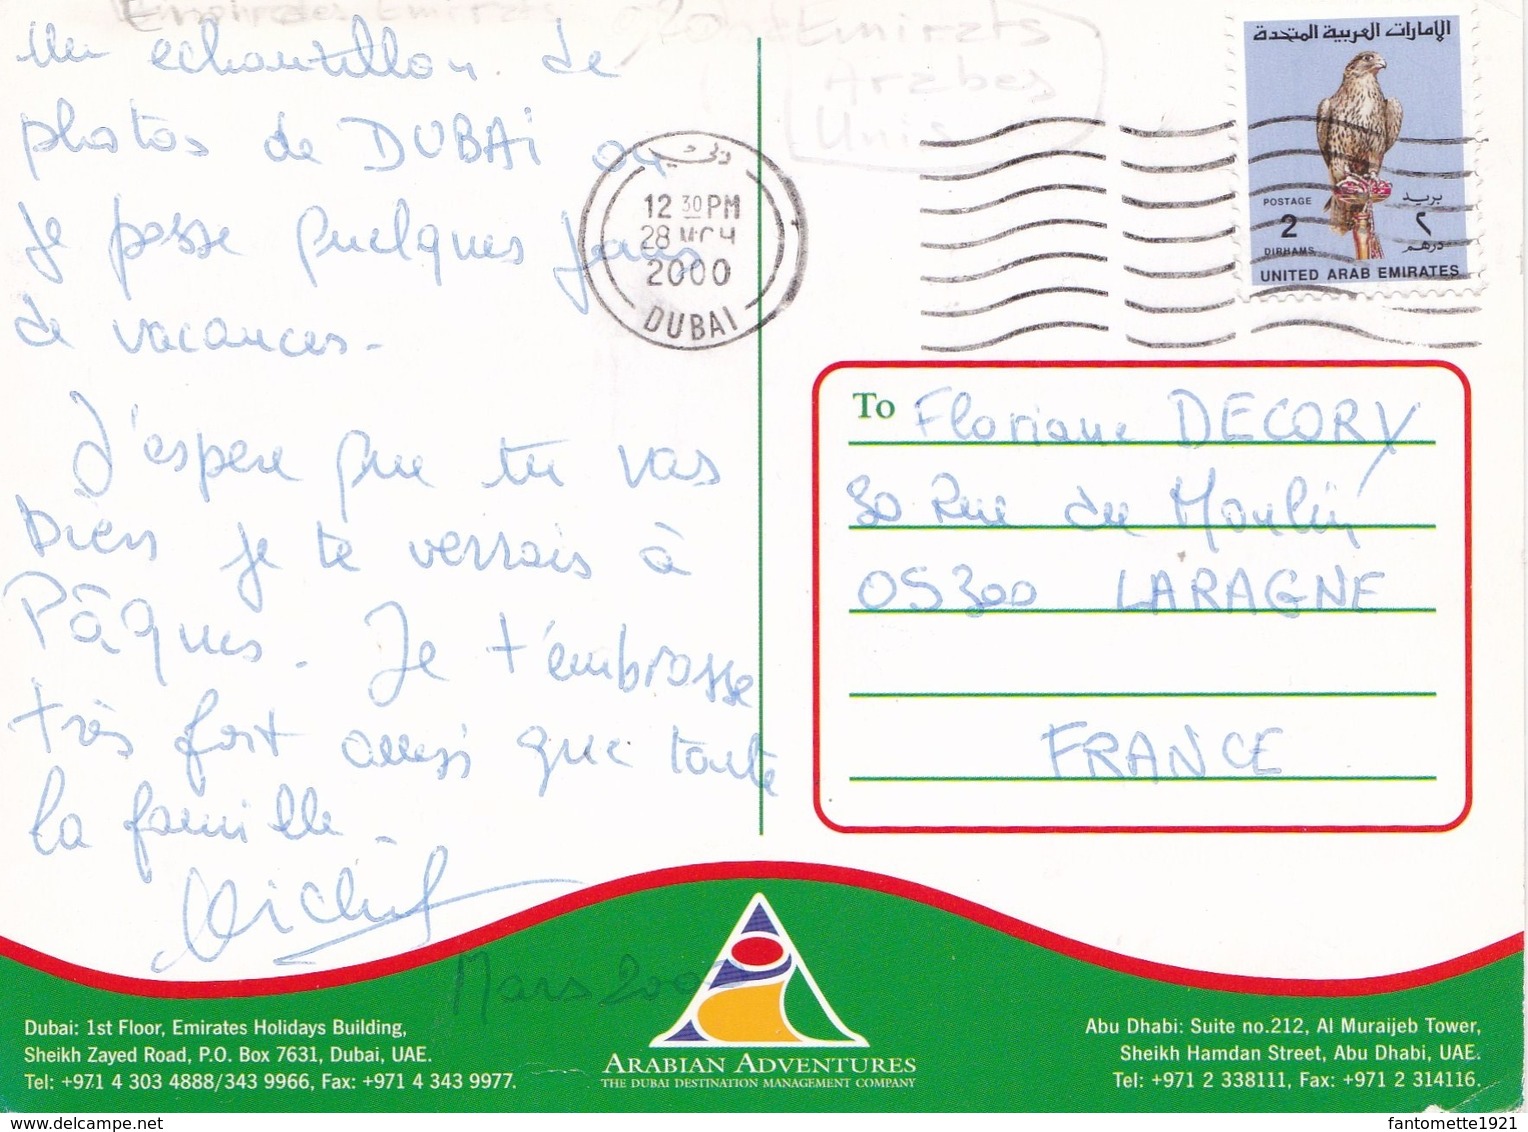 Emirats
Arabes
Unis
Un echantillon de
photos de DUBAI ou
je passe quelques jours
de vacances -
J'espere que tu vas
bien je te verrais à
Pâques. Je t'embrasse
très fort aussi que toute
la famille -
Mars 2000
دبي
12 30 PM
28 MCH
2000
DUBAI
الإمارات العربية المتحدة
POSTAGE
2
DIRHAMS
بريد
٢
درهم
UNITED ARAB EMIRATES
To Floriane DECORY
30 Rue du Moulin
05300 LARAGNE
FRANCE
Dubai: 1st Floor, Emirates Holidays Building,
Sheikh Zayed Road, P.O. Box 7631, Dubai, UAE.
Tel: +971 4 303 4888/343 9966, Fax: +971 4 343 9977.
ARABIAN ADVENTURES
THE DUBAI DESTINATION MANAGEMENT COMPANY
Abu Dhabi: Suite no.212, Al Muraijeb Tower,
Sheikh Hamdan Street, Abu Dhabi, UAE.
Tel: +971 2 338111, Fax: +971 2 314116.
fantomette1921